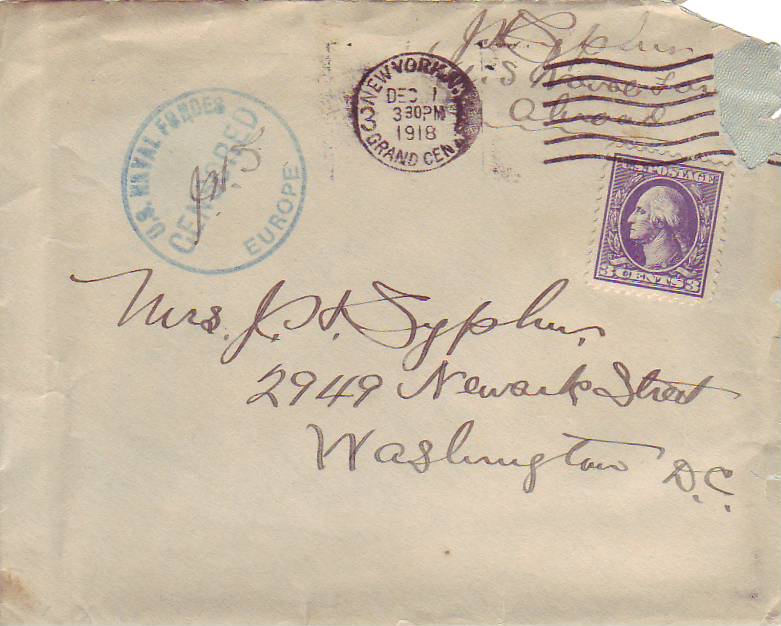 J.H. Syphers
U.S. Naval For
Abroad
NEW YORK, N.Y.
DEC 1
3 30PM
1918
GRAND CEN.
U.S. NAVAL FORCES
CENSORED
EUROPE
U.S. POSTAGE
3 CENTS 3
Mrs. J. H. Syphers,
2949 Newark Street
Washington D.C.